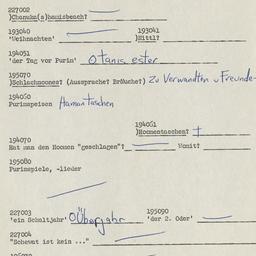 227002
)Chanuka(a)hauisbesch?
193040 193041
'Weihnachten' )Hittl?
194051
'der Tag vor Purin' Otanis ester
195070
)Schlachmoones? (Aussprache? Bräuche?) Zu Verwandten u Freunde-
194060
Purimspeisen Hamantaschen
194061
)Homentaschen? +
194070
Hat man den Hoomen "geschlagen"? Womit?
195080
Purimspiele, -lieder
227003 195090
'ein Schaltjahr' Überjahr 'der 2. Oder'
227004
"Schewat ist kein ..."